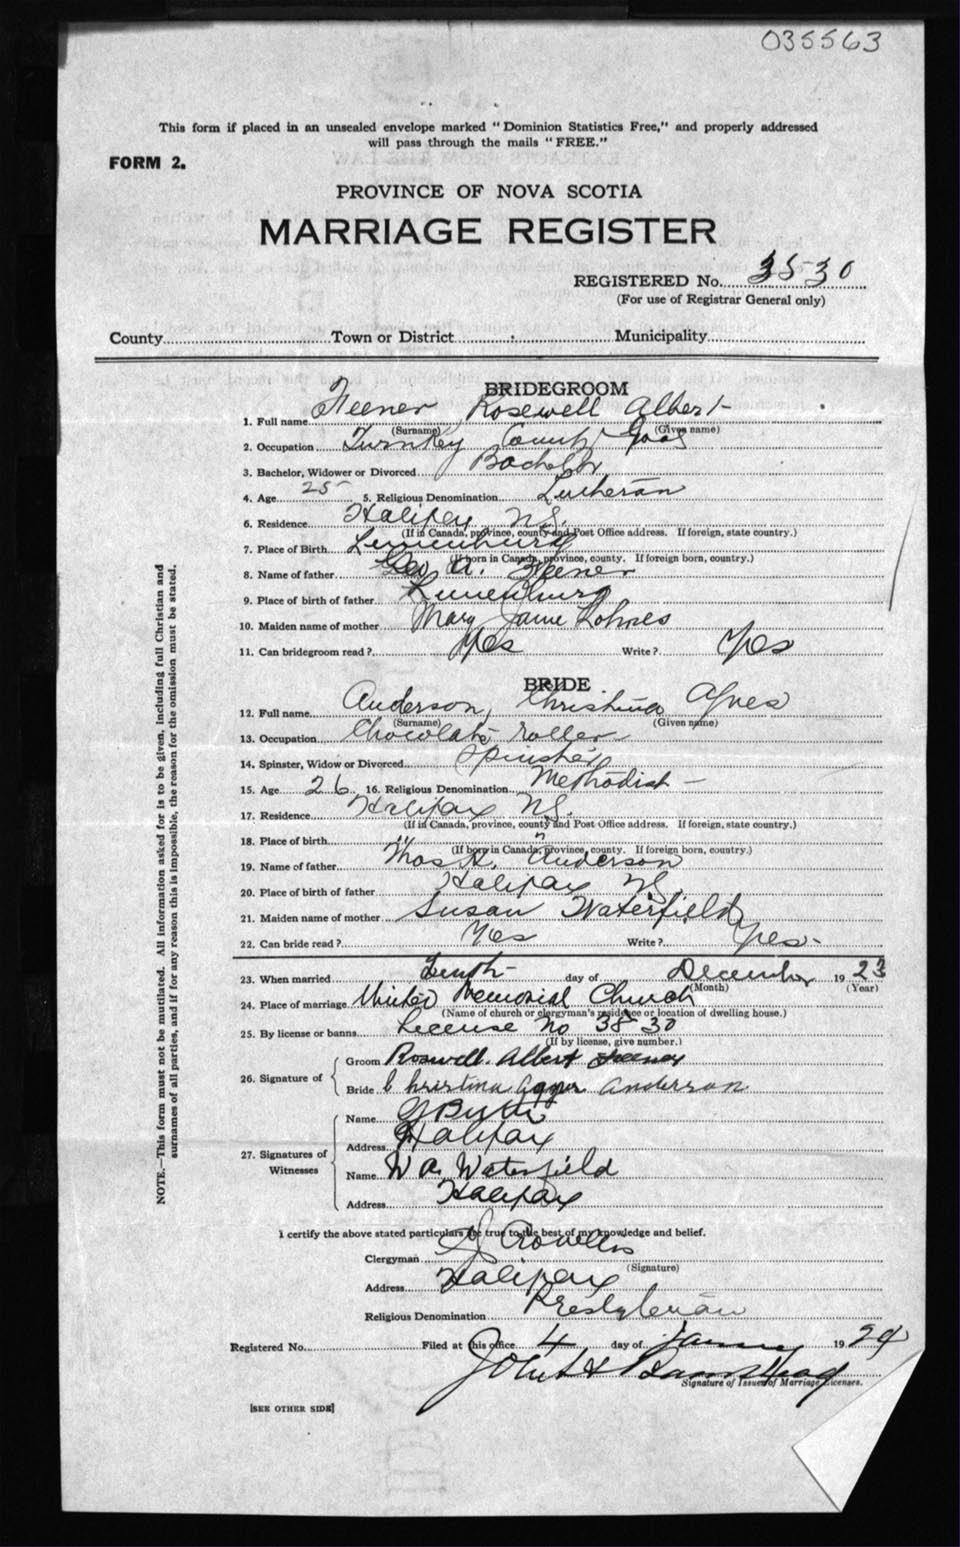 035563
This form if placed in an unsealed envelope marked "Dominion Statistics Free," and properly addressed
will pass through the mails "FREE."
FORM 2.
PROVINCE OF NOVA SCOTIA
MARRIAGE REGISTER
REGISTERED No. 3530
(For use of Registrar General only)
County Town or District Municipality
BRIDEGROOM
1. Full name Feener Rosewell Albert
(Surname) (Given name)
2. Occupation Turnkey County Gaol
3. Bachelor, Widower or Divorced Bachelor
4. Age 25 5. Religious Denomination Lutheran
6. Residence Halifax N.S.
(If in Canada, province, county and Post Office address. If foreign, state country.)
7. Place of Birth Lunenburg
(If born in Canada, province, county. If foreign born, country.)
8. Name of father Geo A. Feener
9. Place of birth of father Lunenburg
10. Maiden name of mother Mary Jane Lohnes
11. Can bridegroom read? Yes Write? Yes
BRIDE
12. Full name Anderson, Christina Agnes
(Surname) (Given name)
13. Occupation Chocolate roller
14. Spinster, Widow or Divorced Spinster
15. Age 26 16. Religious Denomination Methodist
17. Residence Halifax N.S.
(If in Canada, province, county and Post Office address. If foreign, state country.)
18. Place of birth " "
(If born in Canada, province, county. If foreign born, country.)
19. Name of father Thos H. Anderson
20. Place of birth of father Halifax N.S.
21. Maiden name of mother Susan Waterfield
22. Can bride read? Yes Write? Yes
23. When married Tenth day of December 1923
(Month) (Year)
24. Place of marriage Memorial Church
(Name of church or clergyman's residence or location of dwelling house.)
25. By license or banns License No 3830
(If by license, give number.)
26. Signature of
Groom Roswell Albert Feener
Bride Christina Agnes Anderson
27. Signatures of Witnesses
Name
Address Halifax
Name W A. Waterfield
Address Halifax
I certify the above stated particulars are true to the best of my knowledge and belief.
Clergyman
(Signature)
Address Halifax
Religious Denomination Presbyterian
Registered No. Filed at this office 4 day of January 1924
Signature of Issuer of Marriage Licenses.
[SEE OTHER SIDE]
NOTE.—This form must not be mutilated. All information asked for is to be given, including full Christian and
surnames of all parties, and if for any reason this is impossible, the reason for the omission must be stated.